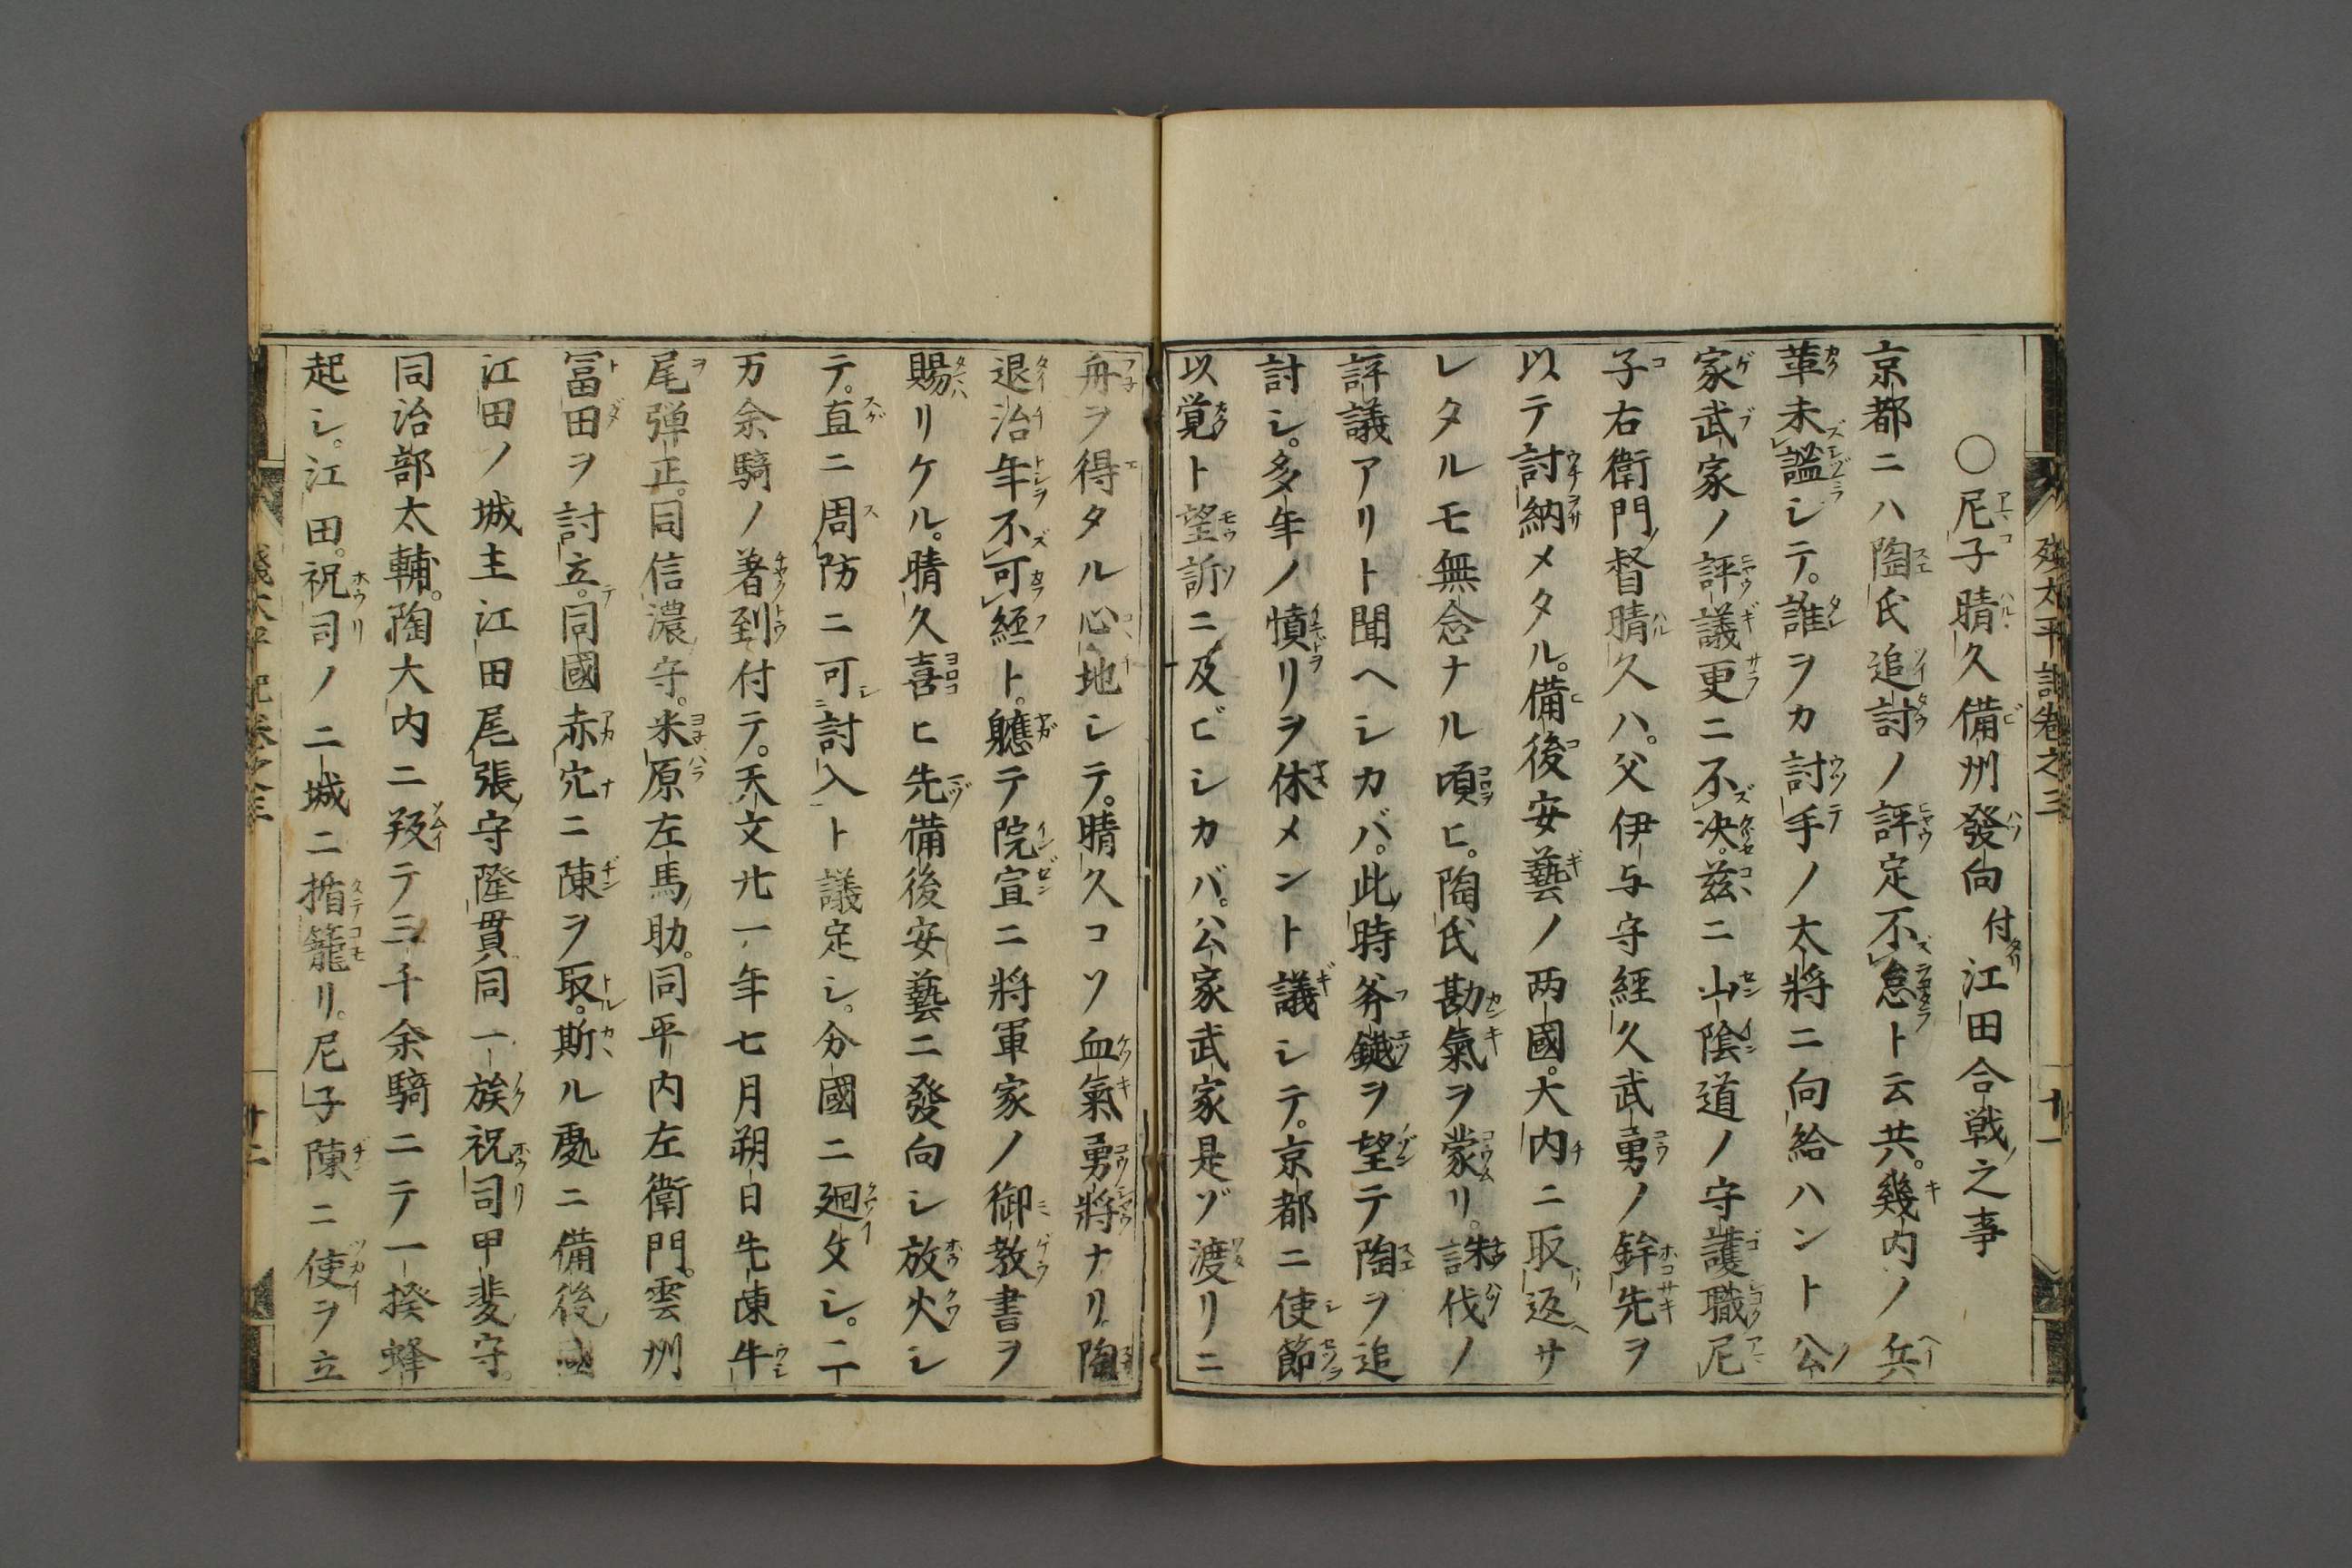 ○尼子晴久備州發向付江田合戰之事
京都ニハ陶氏追討ノ評定不怠ト云共。幾内ノ兵
革未謐シテ。誰ヲカ討手ノ太將ニ向給ハント公
家武家ノ評議更ニ不决。茲ニ山陰道ノ守護職尼
子右衛門督晴久ハ。父伊与守經久武勇ノ鉾先ヲ
以テ討納メタル。備後安藝ノ两國。大内ニ取返サ
レタルモ無念ナル頃ヒ。陶氏勘氣ヲ蒙リ。誅伐ノ
評議アリト聞ヘシカバ。此時斧鉞ヲ望テ陶ヲ追
討シ。多年ノ憤リヲ休メント議シテ。京都ニ使節
以覚ト望訴ニ及ビシカバ。公家武家是ゾ渡リニ
舟ヲ得タル心地シテ。晴久コソ血氣勇將ナリ陶
退治年不可經ト。軈テ院宣ニ將軍家ノ御教書ヲ
賜リケル。晴久喜ヒ先備後安藝ニ發向シ放火シ
テ。直ニ周防ニ可討入ト議定シ。分國ニ廻文シ。二
万余騎ノ著到付テ。天文廿一年七月朔日先陳牛
尾弾正。同信濃守。米原左馬助。同平内左衛門。雲州
冨田ヲ討立。同國赤穴ニ陳ヲ取。斯ル處ニ備後國
江田ノ城主江田尾張守隆貫同一族祝司甲斐守。
同治部太輔。陶大内ニ叛テ三千余騎ニテ一揆蜂
起シ。江田。祝司ノ二城ニ楯籠リ。尼子陳ニ使ヲ立
殘太平記卷之三
十一
殘太平記卷之三
十二